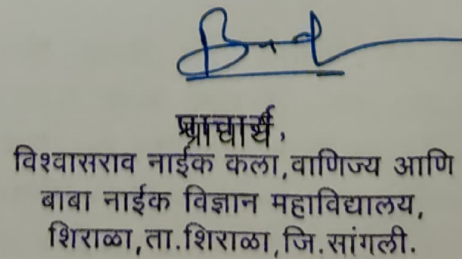 प्राचार्य,
विश्वासराव नाईक कला,वाणिज्य आणि
बाबा नाईक विज्ञान महाविद्यालय,
शिराळा,ता.शिराळा,जि.सांगली.